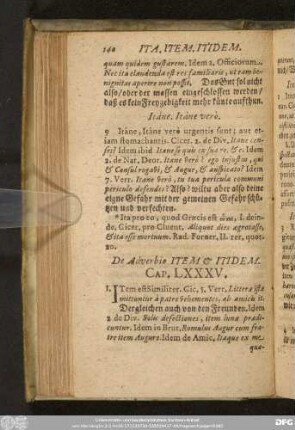 140 ITA, ITEM, ITIDEM.
quam quidem gustarem. Idem 2. Officiorum.
Nec ita claudenda est res familiaris, ut eam be-
nignitas aperire non possit. Das Gut sol nicht
also/ oder der massen eingeschlossen werden/
daß es kein Freygebigkeit mehr könte auffthun.
Itáne, Itáne verò.
9 Itáne, Itáne verò urgentis sunt; aut et-
iam stomachantis. Cicer. 2. de Div, Itane cen-
ses? Idem ibid Itane
2. de Nat, Deor. Itane verò? ego injustus, qui
& Consul rogavi, & Augur, & auspicato? Idem
7. Verr. Itane verò, tu tua pericula communi
periculo defendes? Also? wiltu aber also deine
eigne Gefahr mit der gemeinen Gefahr schü-
tzen und verfechten.
Ita pro
de, Gicere, pro Cluent, Aliquot dies aegrotasse,
& ita esse mortuum. Rad. Forner, II. rer, quot.
10.
De Adverbio ITEM & ITIDEM.
CAP, LXXXV.
1. ITem est Similiter. Cic, 5, Verr, Litterae
mittuntur à patre vehementes, ab amicis it.
Dergleichen auch von den Freunden, Idem
2 de Div. Solis defectiones, item lunae praedi-
cuntur. Idem in Brut, Romulus Augur cum fra-
tre item Augure. Idem de Amic, Itaque ex me
que-